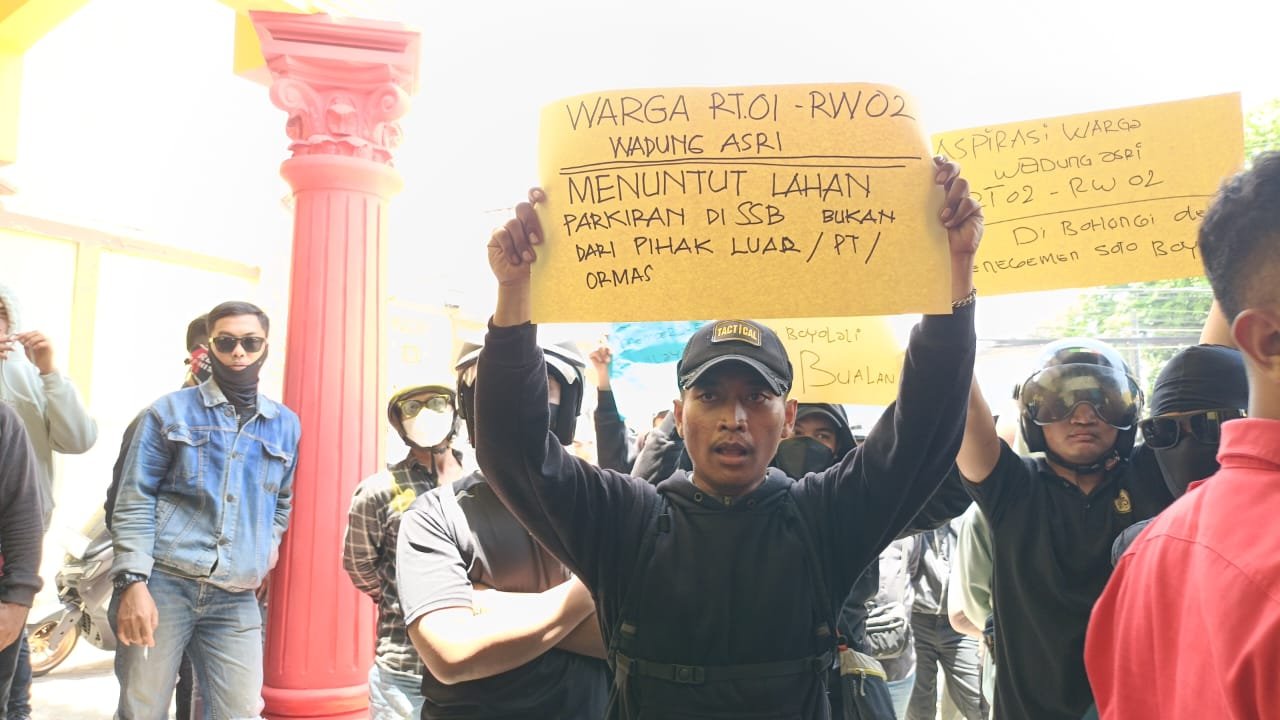 WARGA RT.01 - RW02
WADUNG ASRI
MENUNTUT LAHAN
PARKIRAN DI SSB BUKAN
DARI PIHAK LUAR / PT /
ORMAS
ASPIRASI WARGA
WADUNG ASRI
RT02 - RW 02
Di BOHONGI
SOTO
BOYOLALI
BUALAN
TACTICAL